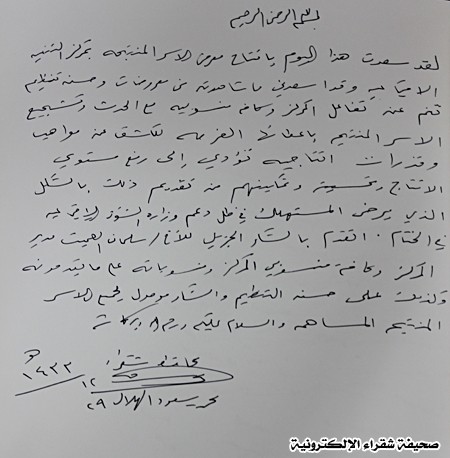 بسم الله الرحمن الرحيم
لقد سعدت هذا اليوم بافتتاح معرض الأسر المنتجة بمركز التنمية
الاجتماعية وقد أسعدني ما شاهدته من معروضات وحسن تنظيم
تنم عن تفاعل المركز وكافة منسوبيه مع الحدث وتشجيع
الأسر المنتجة بإعطائها الفرصة للكشف عن مواهب
وقدرات انتاجية تؤدي إلى رفع مستوى
الانتاج وتحسينه وتمكينهم من تقديم ذلك بالشكل
الذي يرضي المستهلك في ظل دعم وزارة الشؤون الإجتماعية
في الختام . أتقدم بالشكر الجزيل للأخ / سلمان مدير
المركز وكافة منسوبي المركز ومنسوباته على ما يقدمونه
وكذلك على حسن التنظيم والشكر موصول لجميع الأسر
المنتجة المساهمة والسلام عليكم ورحمة الله وبركاته
محافظ شقراء
محمد سعود الهلال ٢٩ / ١٢ / ١٤٣٣ هـ
صحيفة شقراء الإلكترونية